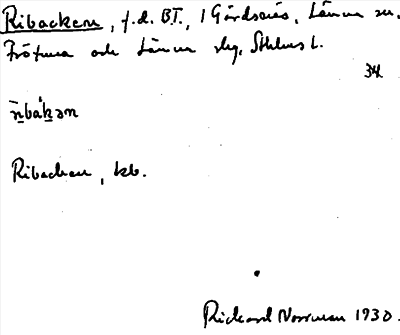 Ribacken, f.d. BT., 1 Gårdsnäs, Länna sn.
Frötuna och Länna skg, Sthlms l.
34.
Ribacken, kb.
Rickard Norrman 1930.